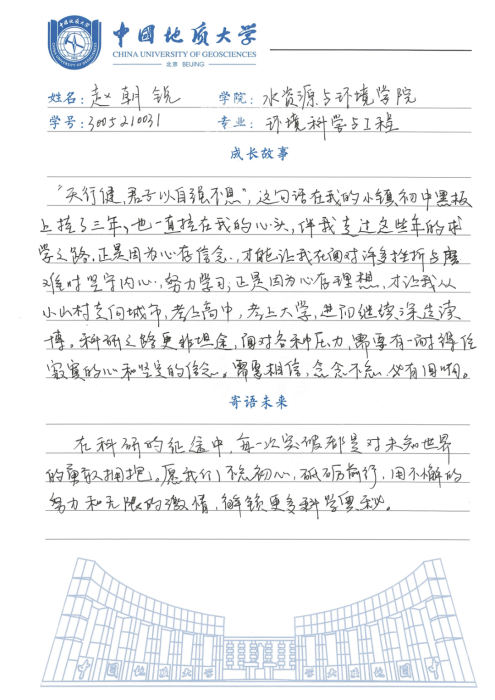 中国地质大学
CHINA UNIVERSITY OF GEOSCIENCES
北京 BEIJING
姓名：赵朝锐 学院：水资源与环境学院
学号：3005210031 专业：环境科学与工程
成长故事
“天行健，君子以自强不息”，这句话在我的小镇初中黑板
上挂了三年，也一直挂在我的心头，伴我走过这些年的求
学之路。正是因为心存信念，才能让我在面对许多挫折与磨
难时坚守内心，努力学习；正是因为心存理想，才让我从
小山村走向城市，考上高中，考上大学，进而继续深造读
博。科研之路更非坦途，面对各种压力，需要有一耐得住
寂寞的心和坚定的信念。需要相信，念念不忘，必有回响。
寄语未来
在科研的征途中，每一次实验都是对未知世界
的勇敢拥抱。愿我们不忘初心，砥砺前行，用不懈的
努力和无限的激情，解锁更多科学奥秘。
中国地质大学 中国地质大学